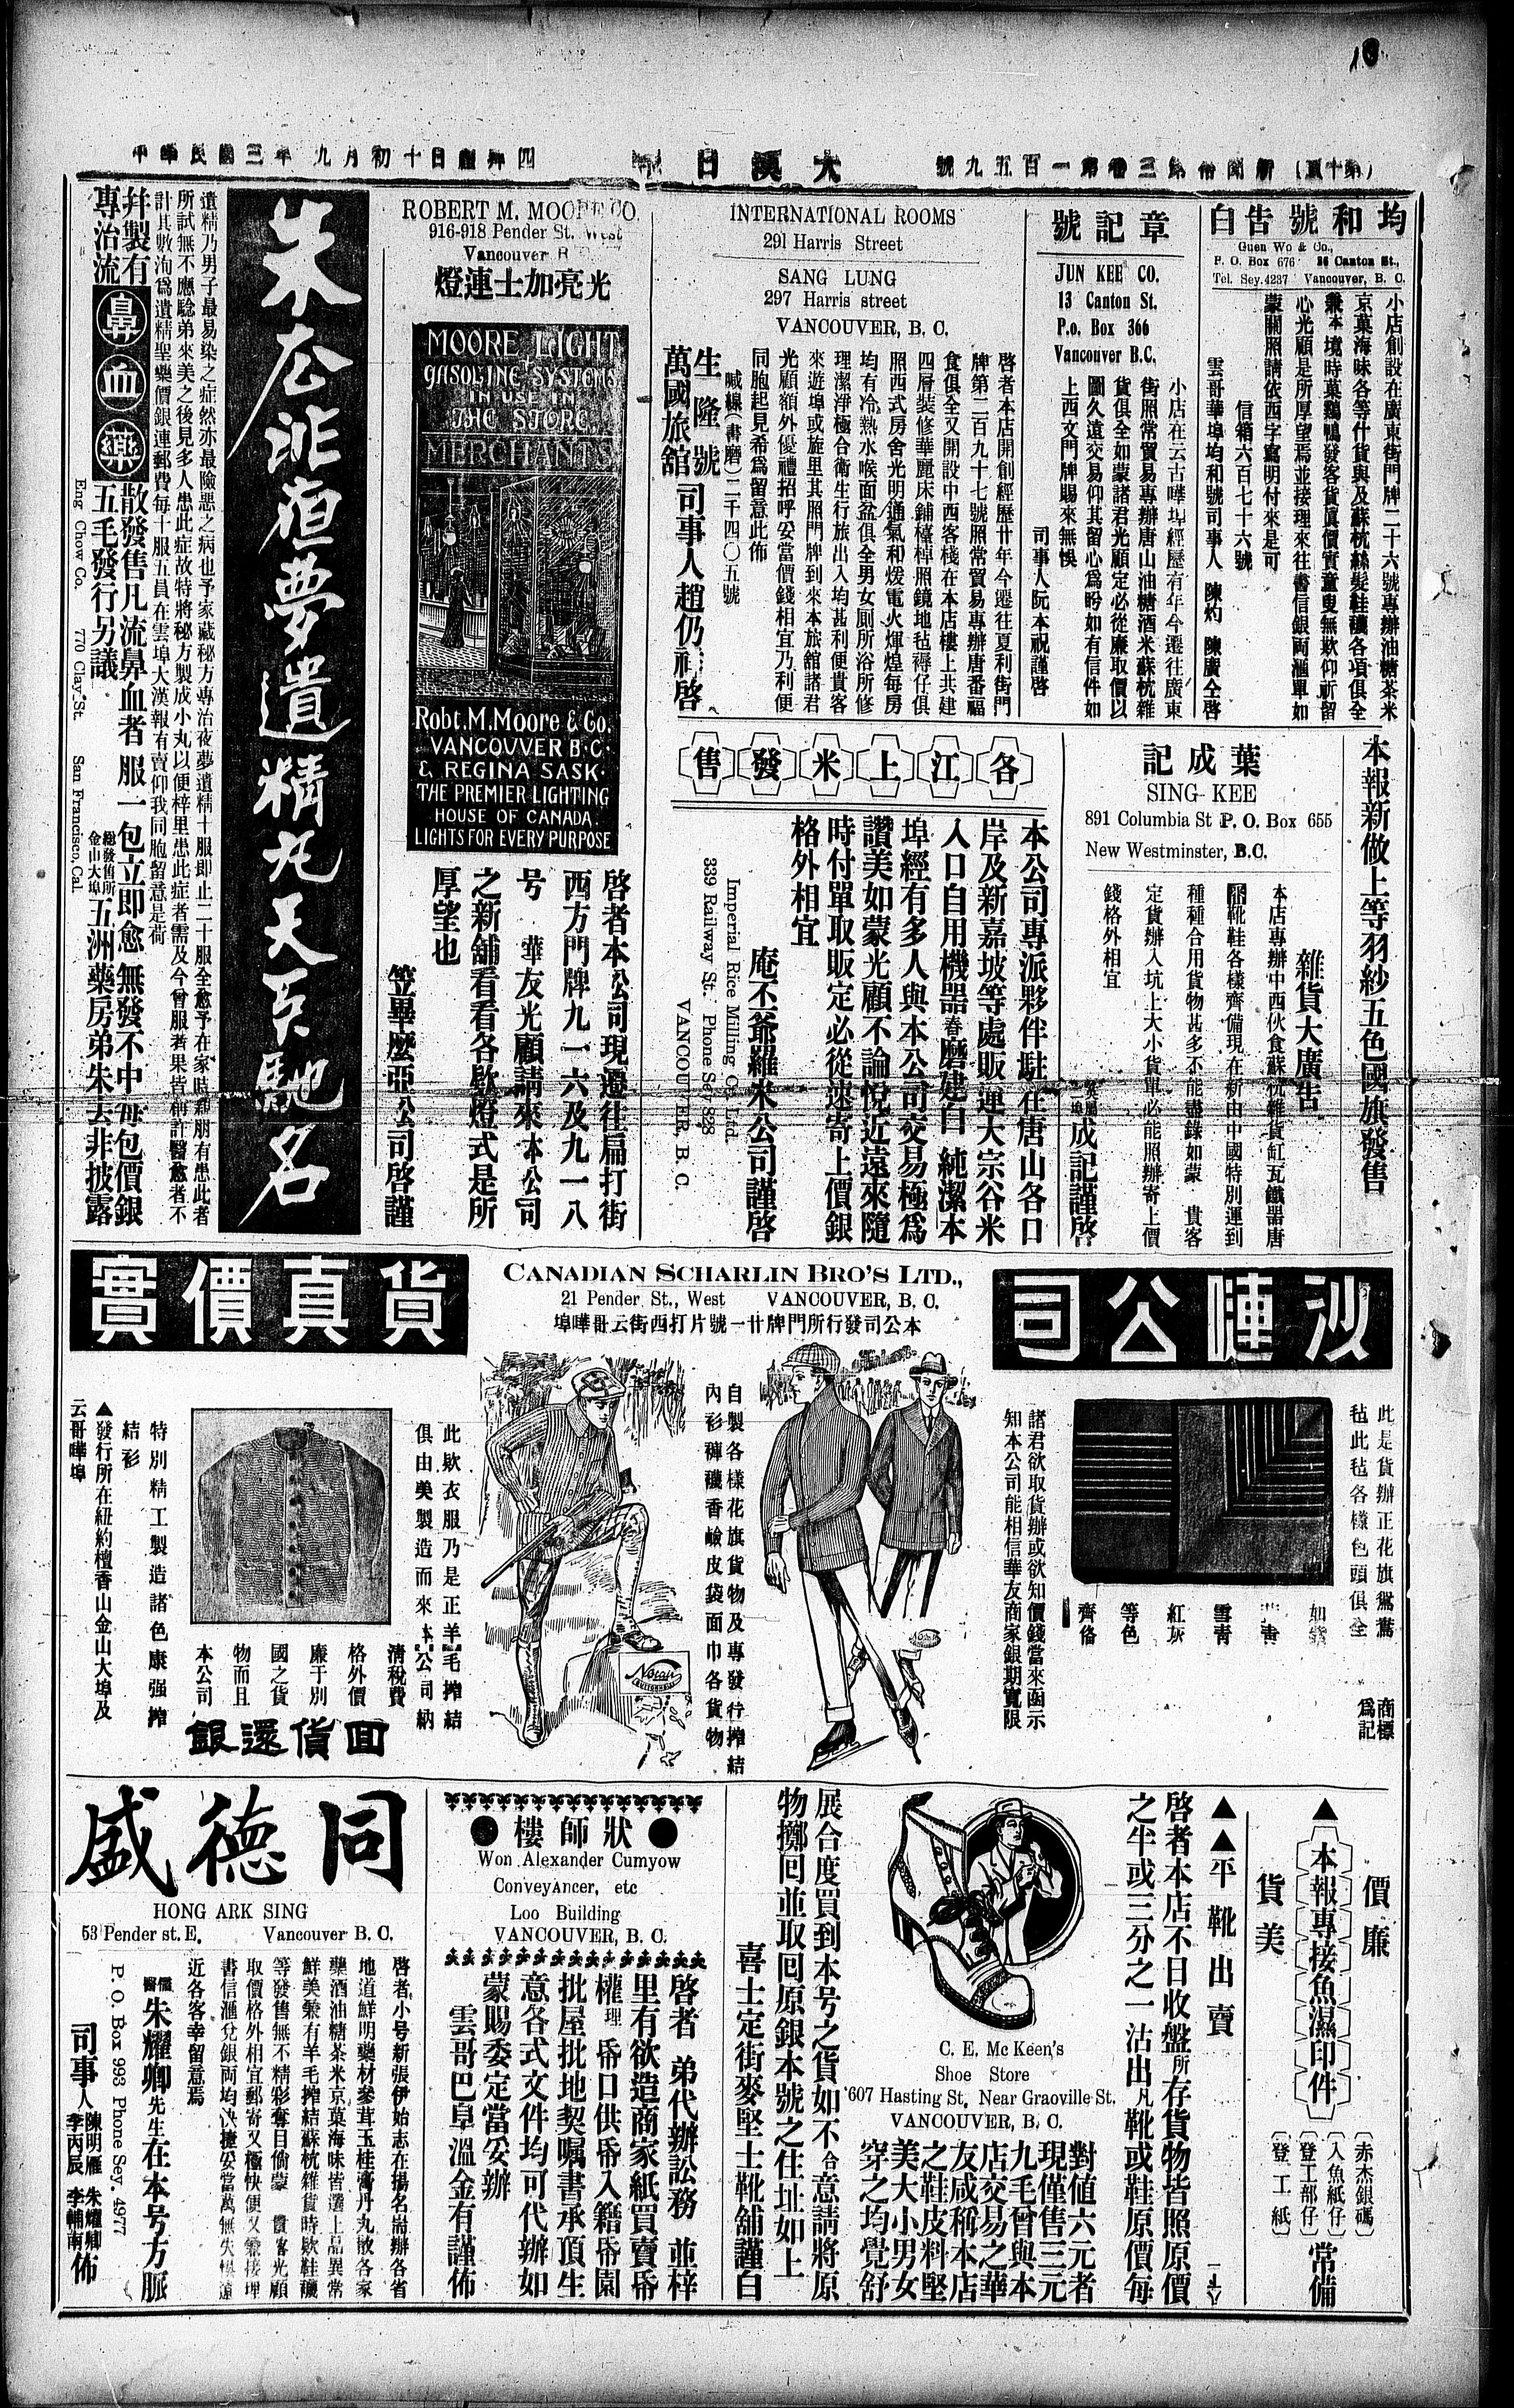 10
(第十頁) 新聞第三卷第一百五九號
大漢日報
中華民國三年九月初十日禮拜四
均和號告白
Guen Wo & Co.,
P. O. Box 676 26 Canton St.,
Tel. Sey. 4237 Vancouver, B. C.
小店創設在廣東街門牌二十六號專辦油糖茶米
京菓海味各等什貨與及蘇杭絲髮鞋襪各項俱全
兼本境時菓鷄鴨發客貨眞價實童叟無欺仰祈留
心光顧是所厚望焉並接理來往書信銀両滙單如
蒙關照請依西字寫明付來是可
信箱六百七十六號
雲哥華埠均和號司事人 陳灼 陳廣仝啓
章記號
JUN KEE CO.
13 Canton St.
P.o. Box 366
Vancouver B.C.
小店在云古嘩埠經歷有年今遷往廣東
街照常貿易專辦唐山油糖酒米蘇杭雜
貨俱全如蒙諸君光顧定必從廉取價以
圖久遠交易仰其留心爲盼如有信件如
上西文門牌賜來無悞
司事人阮本祝謹啓
INTERNATIONAL ROOMS
291 Harris Street
SANG LUNG
297 Harris street
VANCOUVER, B. C.
啓者本店開創經歷廿年今遷往夏利街門
牌第二百九十七號照常貿易專辦唐番福
食俱全又開設中西客棧在本店樓上共建
四層裝修華麗床鋪檯椅照鏡地毡褥仔俱
照西式房舍光明通氣和煖電火煇煌每房
均有冷熱水喉面盆俱全男女厠所浴所修
理潔淨極合衛生行旅出入均甚利便貴客
來遊埠或旋里其照門牌到來本旅舘諸君
光顧額外優禮招呼妥當價錢相宜乃利便
同胞起見希爲留意此佈
喊線(書磨)二千四〇五號
生隆號
萬國旅舘
司事人趙仍祥啓
ROBERT M. MOORE CO.
916-918 Pender St. West
Vancouver B.C.
光亮加士連燈
MOORE LIGHT
GASOLINE SYSTEMS
IN USE IN
THE STORE
MERCHANTS
Robt. M. Moore & Co.
VANCOUVER B.C.
& REGINA SASK.
THE PREMIER LIGHTING
HOUSE OF CANADA.
LIGHTS FOR EVERY PURPOSE
啓者本公司現遷往扁打街
西方門牌九一六及九一八
号 華友光顧請來本公司
之新舖看看各欵燈式是所
厚望也
笠畢麽亞公司啓謹
朱公非夜夢遺精丸天下馳名
遺精乃男子最易染之症然亦最險惡之病也予家藏秘方專治夜夢遺精十服即止二十服全愈予在家時親朋有患此者
所試無不應騐弟來美之後見多人患此症故特將秘方製成小丸以便梓里患此症者需及今曾服者果皆稱許醫愈者不
計其數洵爲遺精聖藥價銀連郵費每十服五員在雲埠大漢報有賣仰我同胞留意是荷
幷製有
專治流
鼻血藥
散發售凡流鼻血者服一包立即愈無發不中每包價銀
五毛發行另議
總發售所
金山大埠
五洲藥房弟朱去非披露
Eng Chow Co. 770 Clay St. San Francisco, Cal.
本報新做上等羽紗五色國旗發售
葉成記
SING KEE
891 Columbia St P. O. Box 655
New Westminster, B.C.
雜貨大廣告
本店專辦中西伙食蘇杭雜貨缸瓦鐵器唐
靴鞋各樣齊備現在新由中國特別運到
種種合用貨物甚多不能盡錄如蒙 貴客
定貨辦入坑上大小貨單必能照辦寄上價
錢格外相宜
成記謹啓
各江上米發售
本公司專派夥伴駐在唐山各口
岸及新嘉坡等處販運大宗谷米
入口自用機器舂磨建白純潔本
埠經有多人與本公司交易極爲
讚美如蒙光顧不論悅近遠來隨
時付單取販定必從速寄上價銀
格外相宜
庵丕爺羅米公司謹啓
Imperial Rice Milling Co Ltd.
339 Railway St. Phone Sey 828
VANCOUVER, B. C.
沙陣公司
CANADIAN SCHARLIN BRO'S LTD.,
21 Pender St., West VANCOUVER, B. C.
本公司發行所門牌廿一號片打西街云哥嘩埠
貨真價實
此是貨辦正花旗鴛鴦
毡此毡各樣色頭俱全
商標
爲記
雪青
紅灰
等色
齊俻
諸君欲取貨辦或欲知價錢當來函示
知本公司能相信華友商家銀期寬限
自製各樣花旗貨物及專發行搾結
內衫褲襪香鹼皮袋面巾各貨物
Notair
此欵衣服乃是正羊毛搾結
俱由美製造而來本公司納
清稅費
格外價
廉于別
國之貨
物而且
本公司
回貨還銀
特別精工製造諸色康强搾
結衫
▲發行所在紐約檀香山金山大埠及
云哥嘩埠
▲本報專接魚濕印件
價廉
貨美
赤杰銀碼
入魚紙仔
登工部仔
登工紙
常備
▲▲平靴出賣
啓者本店不日收盤所存貨物皆照原價
之半或三分之一沽出凡靴或鞋原價每
對値六元者
現僅售三元
九毛曾與本
店交易之華
友咸稱本店
之鞋皮料堅
美大小男女
穿之均覺舒
展合度買到本号之貨如不合意請將原
物擲回並取回原銀本號之住址如上
喜士定街麥堅士靴舖謹白
C. E. Mc Keen's
Shoe Store
607 Hasting St, Near Graoville St.
VANCOUVER, B. C.
狀師樓
Won Alexander Cumyow
Conveyancer, etc
Loo Building
VANCOUVER, B. C.
啓者 弟代辦訟務 並梓
里有欲造商家紙買賣帋
權理帋口供帋入籍帋園
批屋批地契嘱書承頂生
意各式文件均可代辦如
蒙賜委定當妥辦
雲哥巴阜溫金有謹佈
同德盛
HONG ARK SING
53 Pender st. E. Vancouver B. C.
啓者小号新張伊始志在揚名耑辦各省
地道鮮明藥材參茸玉桂膏丹丸散各家
藥酒油糖茶米京菓海味皆選上品異常
鮮美兼有羊毛搾結蘇杭雜貨時欵鞋襪
等發售無不精彩奪目倘蒙 貴客光顧
取價格外相宜郵寄又極快便又兼接理
書信滙兌銀両均決捷妥當萬無失悞遠
近各客幸留意焉
儒醫朱耀卿先生在本号方脈
P. O. Box 993 Phone Sey. 4977
司事人 陳明雁 朱耀卿 李丙辰 李輔南 佈